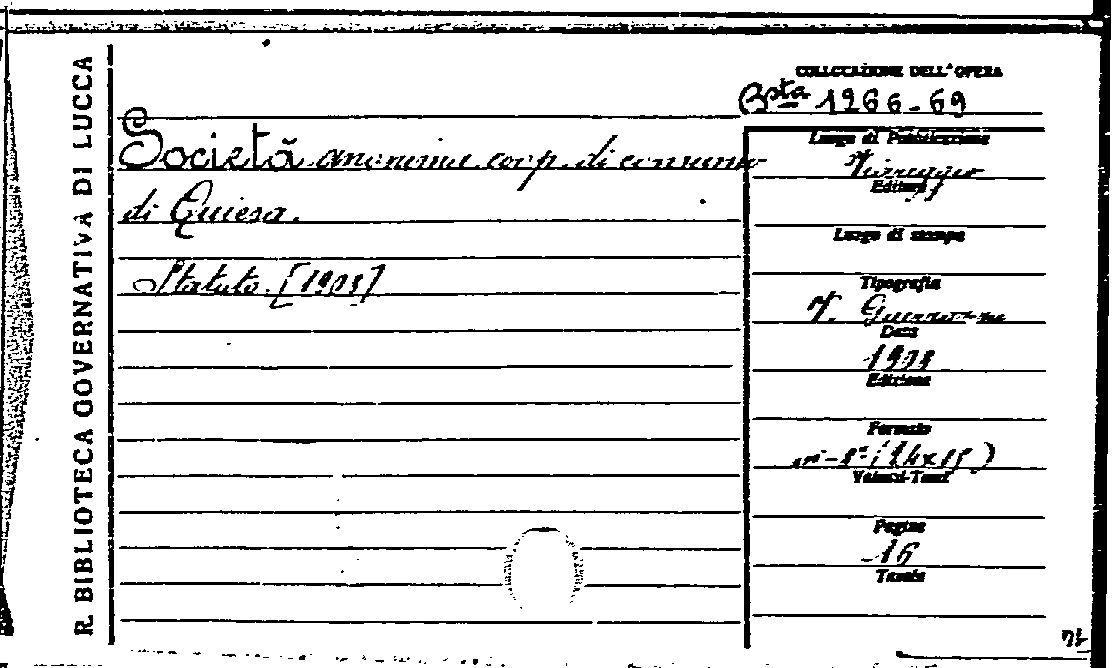 R. BIBLIOTECA GOVERNATIVA DI LUCCA
COLLOCAZIONE DELL'OPERA
Bsta 1266-69
Società anonima coop. di consumo
di Quiesa.
Statuto. [1903]
Luogo di Pubblicazione
Viareggio
Editore
Luogo di stampa
Tipografia
Data
1903
Edizione
Formato
in-8º (24x15)
Volumi-Tomi
Pagine
16
Tavole